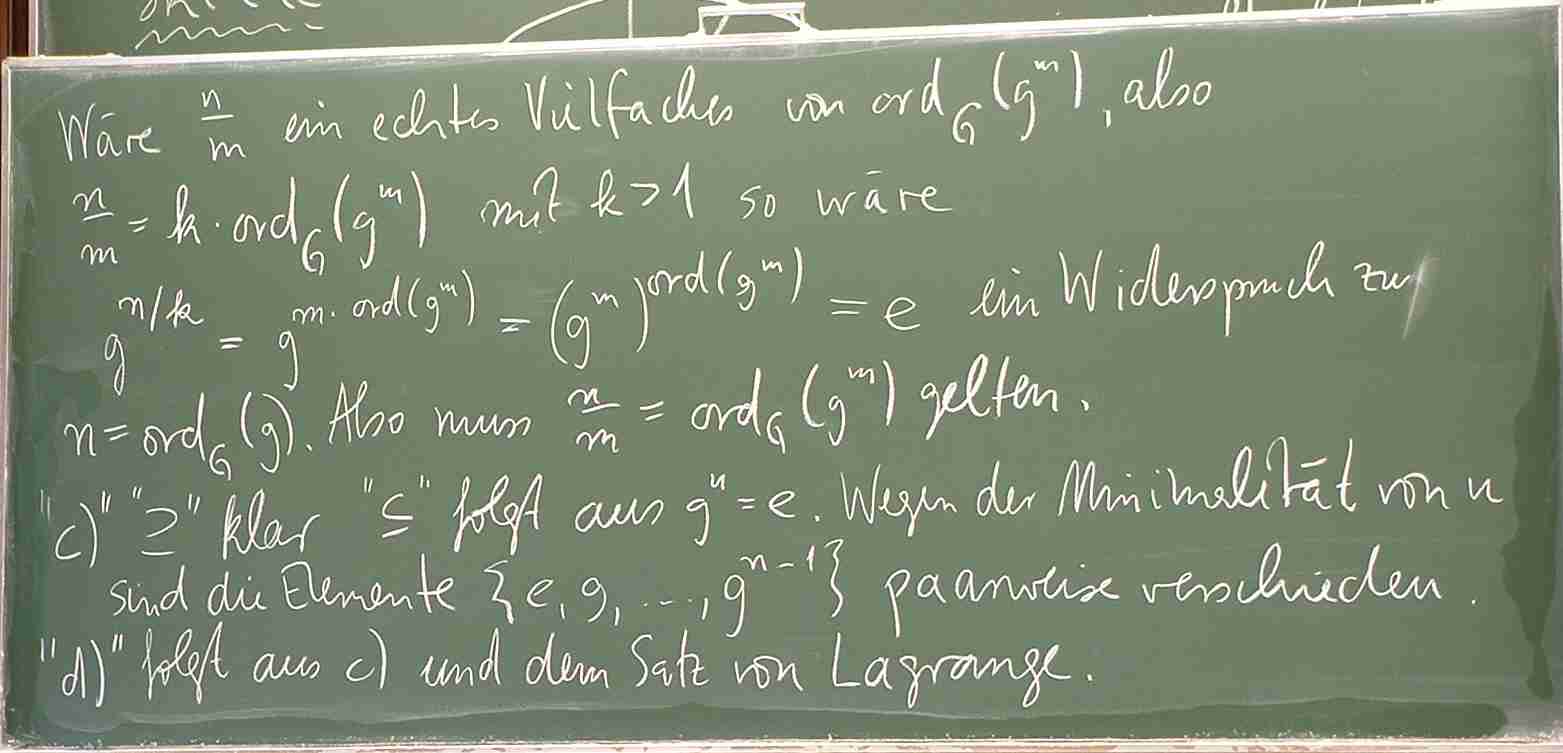 Wäre n/m ein echtes Vielfaches von ord_G(g^m), also
n/m = k · ord_G(g^m) mit k > 1 so wäre
g^{n/k} = g^{m · ord(g^m)} = (g^m)^{ord(g^m)} = e ein Widerspruch zu
n = ord_G(g). Also muss n/m = ord_G(g^m) gelten.
"c)" "⊇" klar "⊆" folgt aus g^n = e. Wegen der Minimalität von n
sind die Elemente {e, g, ..., g^{n-1}} paarweise verschieden.
"d)" folgt aus c) und dem Satz von Lagrange.